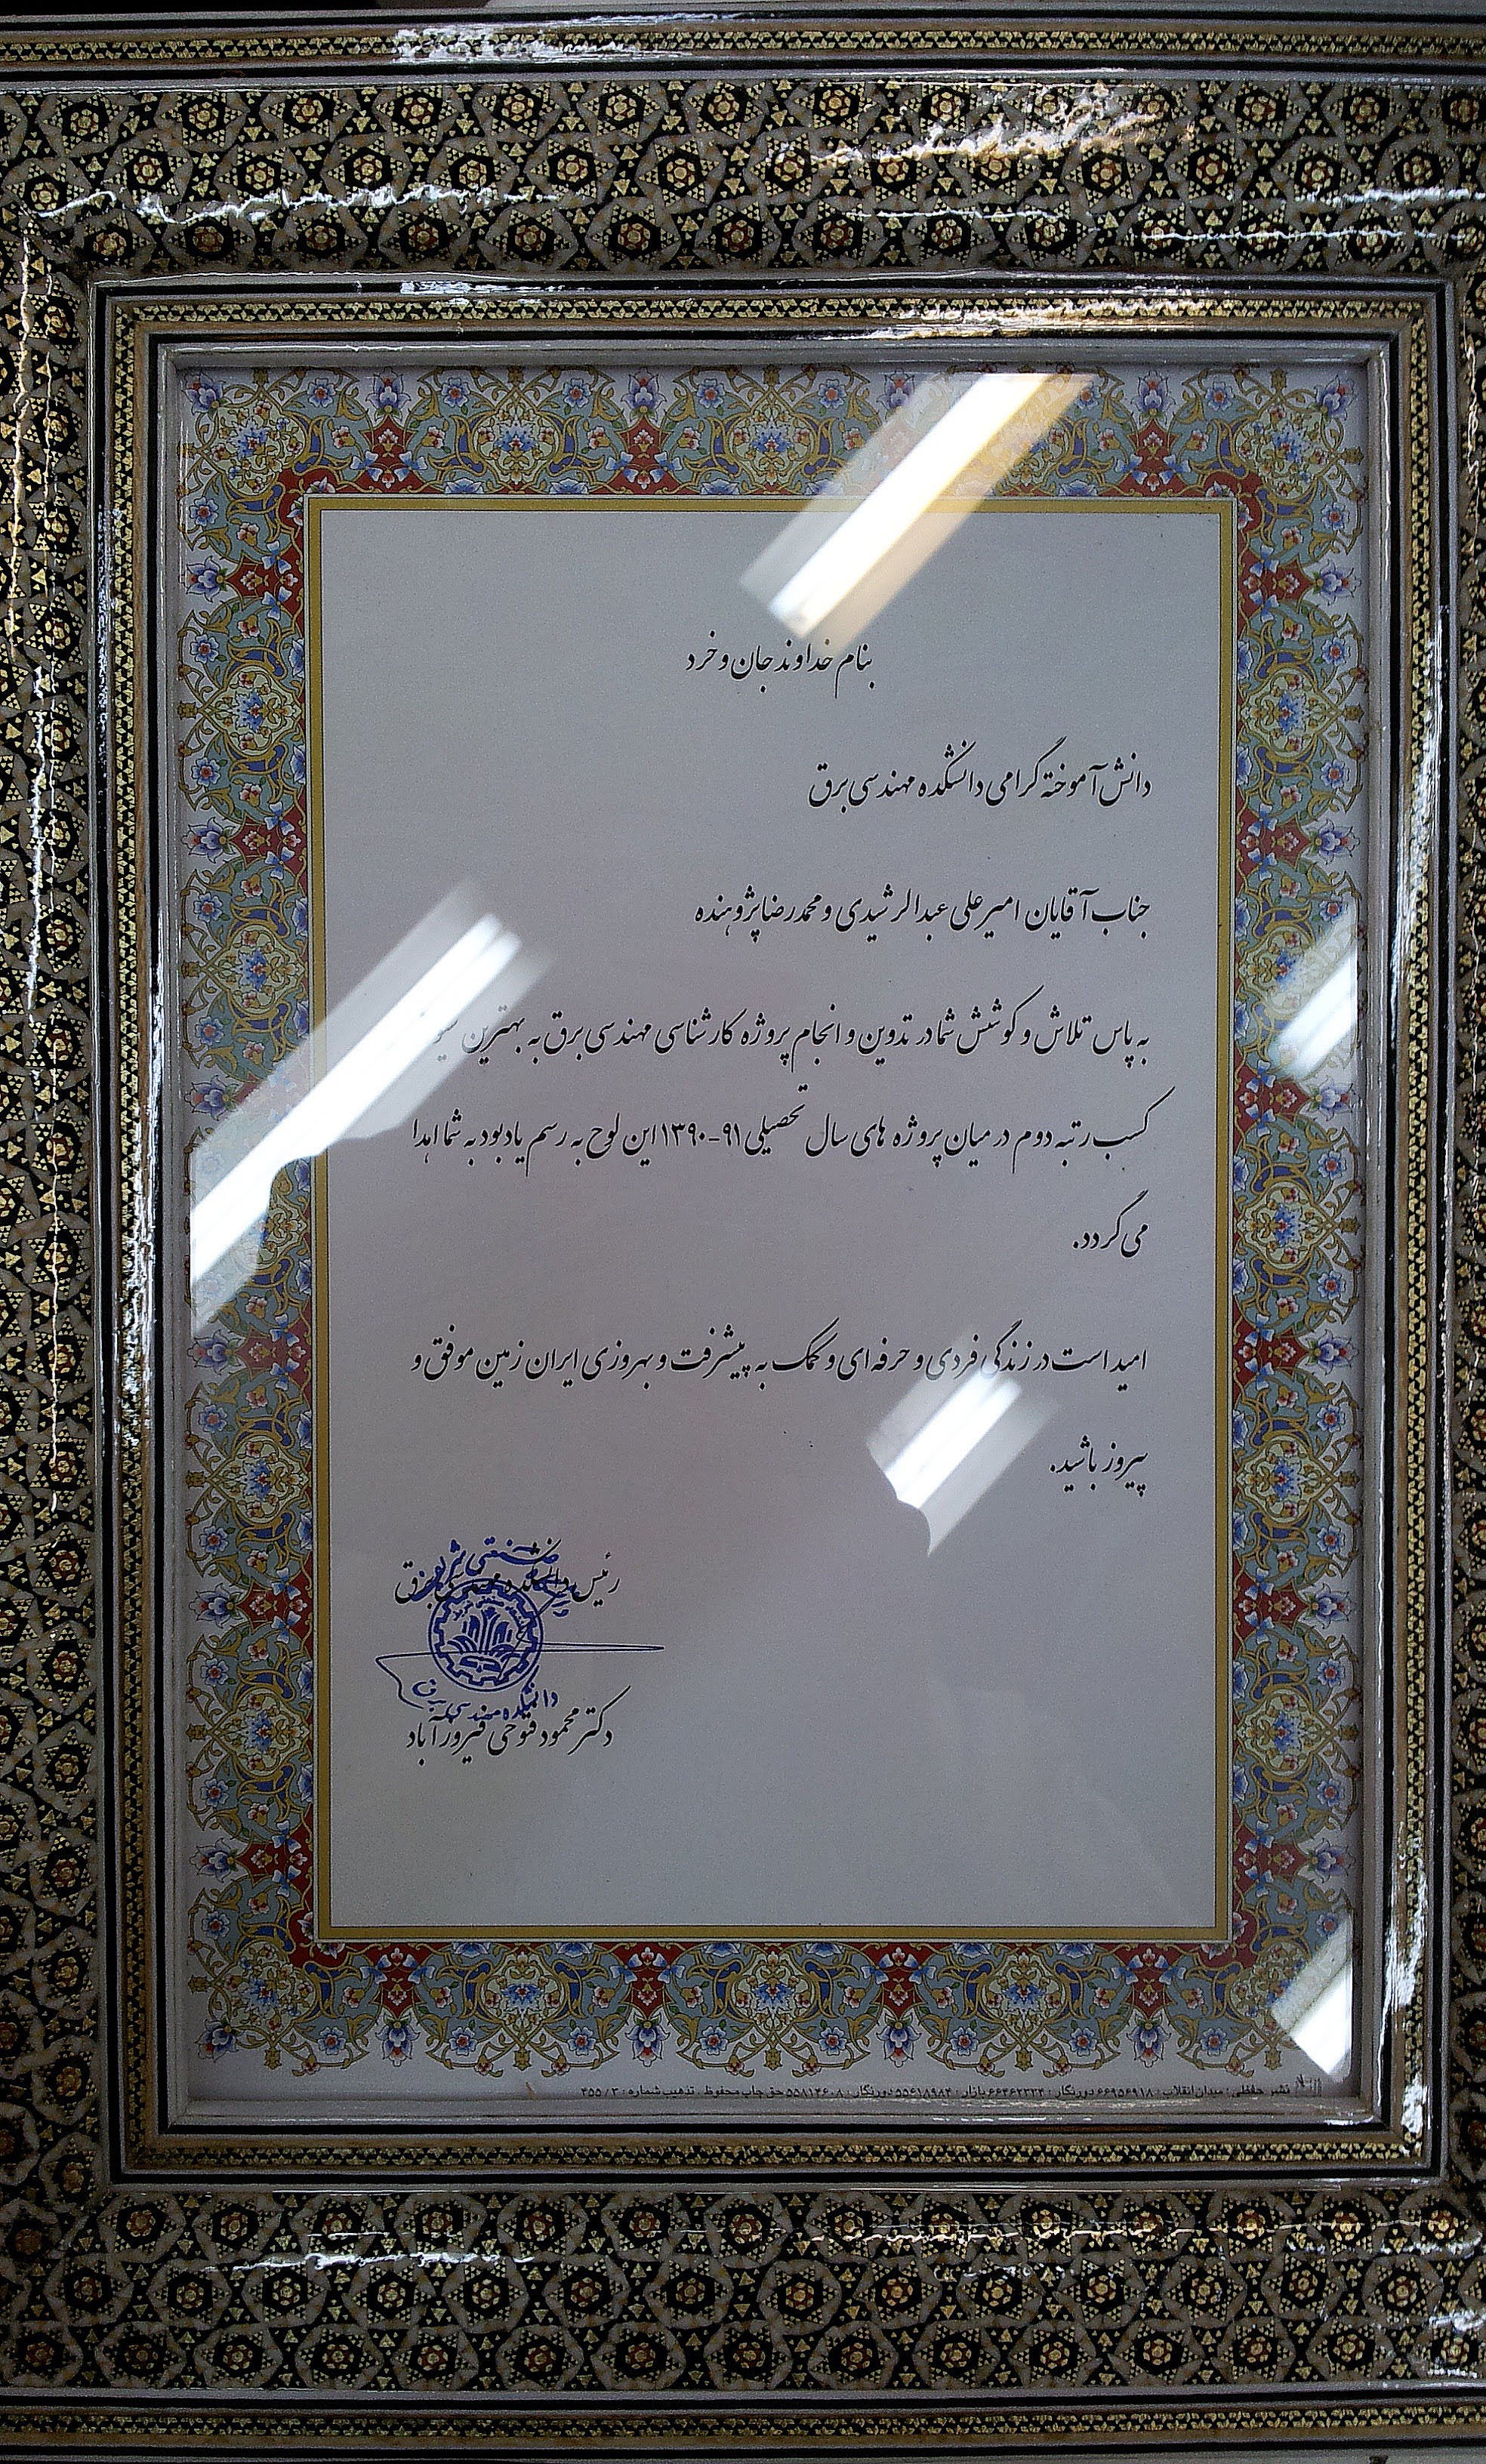 بنام خداوند جان و خرد
دانش آموخته گرامی دانشکده مهندسی برق
جناب آقایان امیرعلی عبدالرشیدی و محمدرضا پژوهنده
به پاس تلاش و کوشش شما در تدوین و انجام پروژه کارشناسی مهندسی برق به بهترین
کسب رتبه دوم در میان پروژه های سال تحصیلی ۹۱-۱۳۹۰ این لوح به رسم یادبود به شما اهدا
می گردد.
امید است در زندگی فردی و حرفه ای و کمک به پیشرفت و بهروزی ایران زمین موفق و
پیروز باشید.
صنعتی شریف
رئیس دانشکده مهندسی برق
دانشکده مهندسی برق
دکتر محمود فتوحی فیروزآباد
نشر حافظی : میدان انقلاب : ۶۶۹۵۶۹۱۸ دورنگار : ۶۶۴۶۲۳۳۴ بازار : ۵۵۶۱۸۹۸۴ دورنگار : ۵۵۸۱۴۶۰۸ حق چاپ محفوظ . تذهیب شماره : ۳ / ۴۵۵